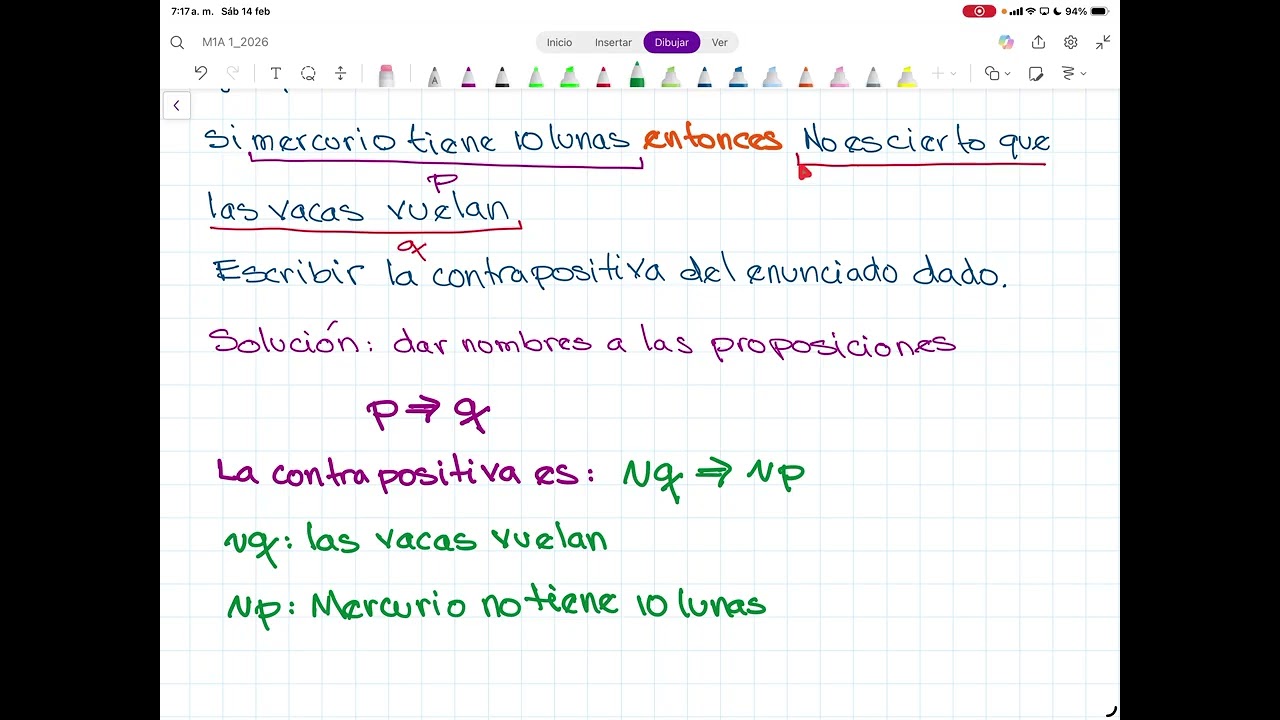 7:17 a. m. Sáb 14 feb 94%
M1A 1_2026 Inicio Insertar Dibujar Ver
si mercurio tiene 10 lunas entonces No es cierto que
p
las vacas vuelan
q
Escribir la contrapositiva del enunciado dado.
Solución: dar nombres a las proposiciones
p ⇒ q
La contrapositiva es: ~q ⇒ ~p
~q: las vacas vuelan
~p: Mercurio no tiene 10 lunas